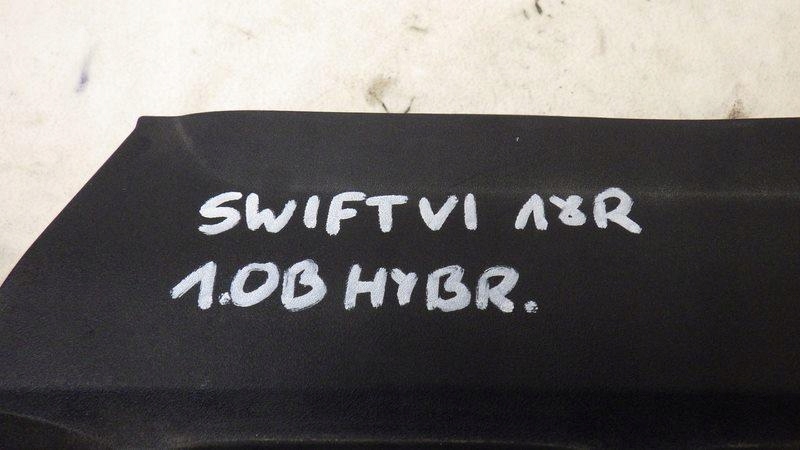 SWIFT VI 18R
1.0B HYBR.